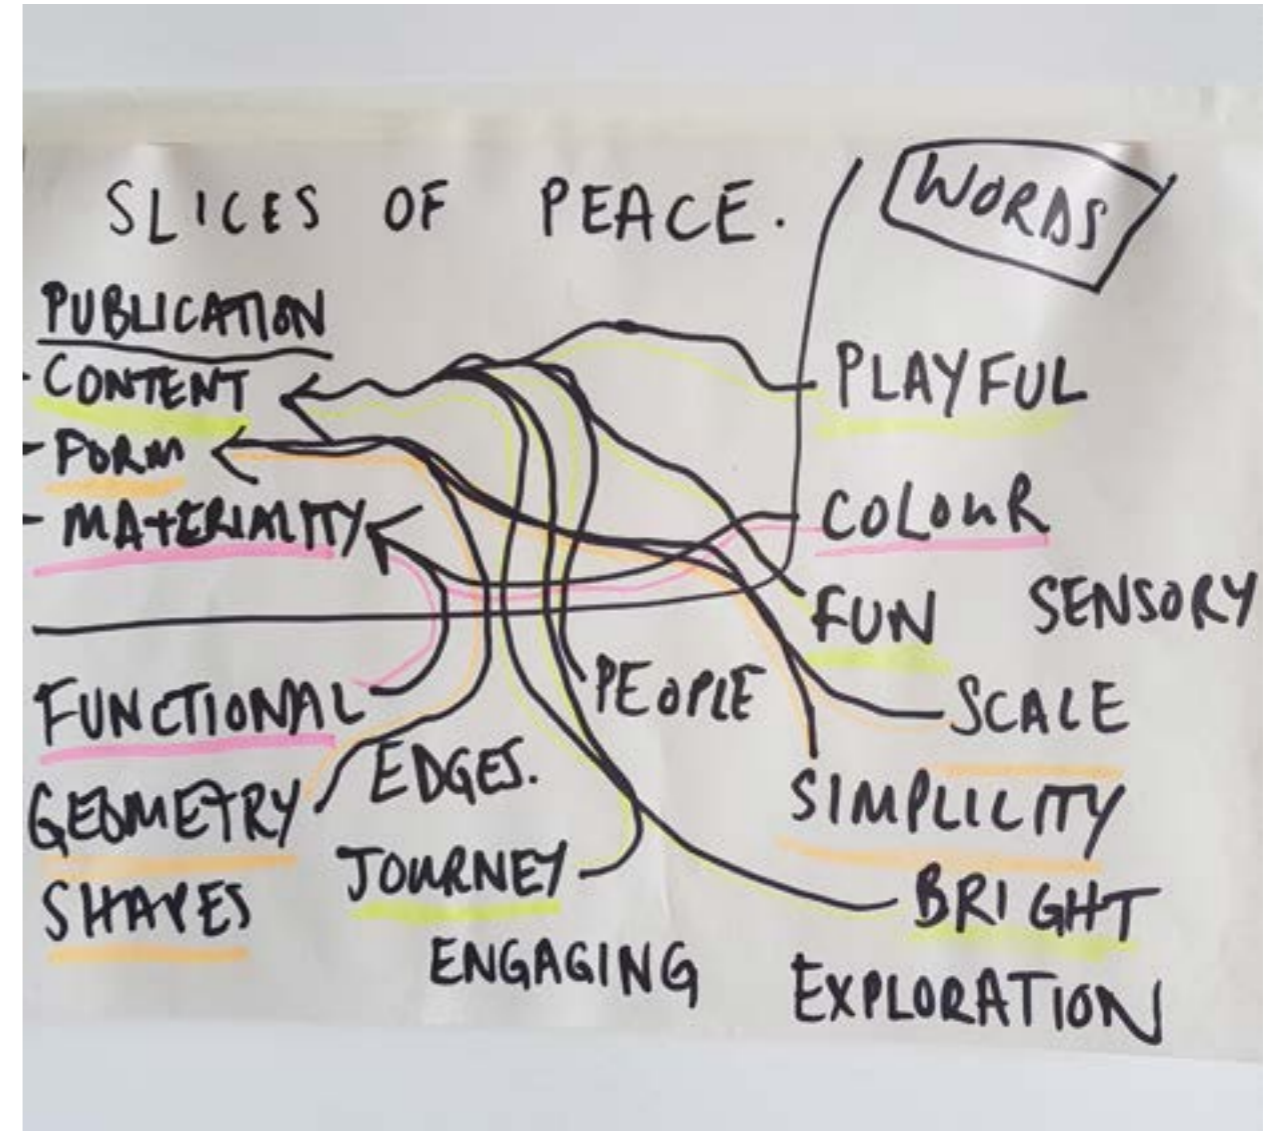 SLICES OF PEACE.
WORDS
PUBLICATION
- CONTENT
- FORM
- MATERIALITY
PLAYFUL
COLOUR
FUN
SENSORY
PEOPLE
SCALE
SIMPLICITY
BRIGHT
EXPLORATION
FUNCTIONAL
GEOMETRY
EDGES.
SHAPES
JOURNEY
ENGAGING